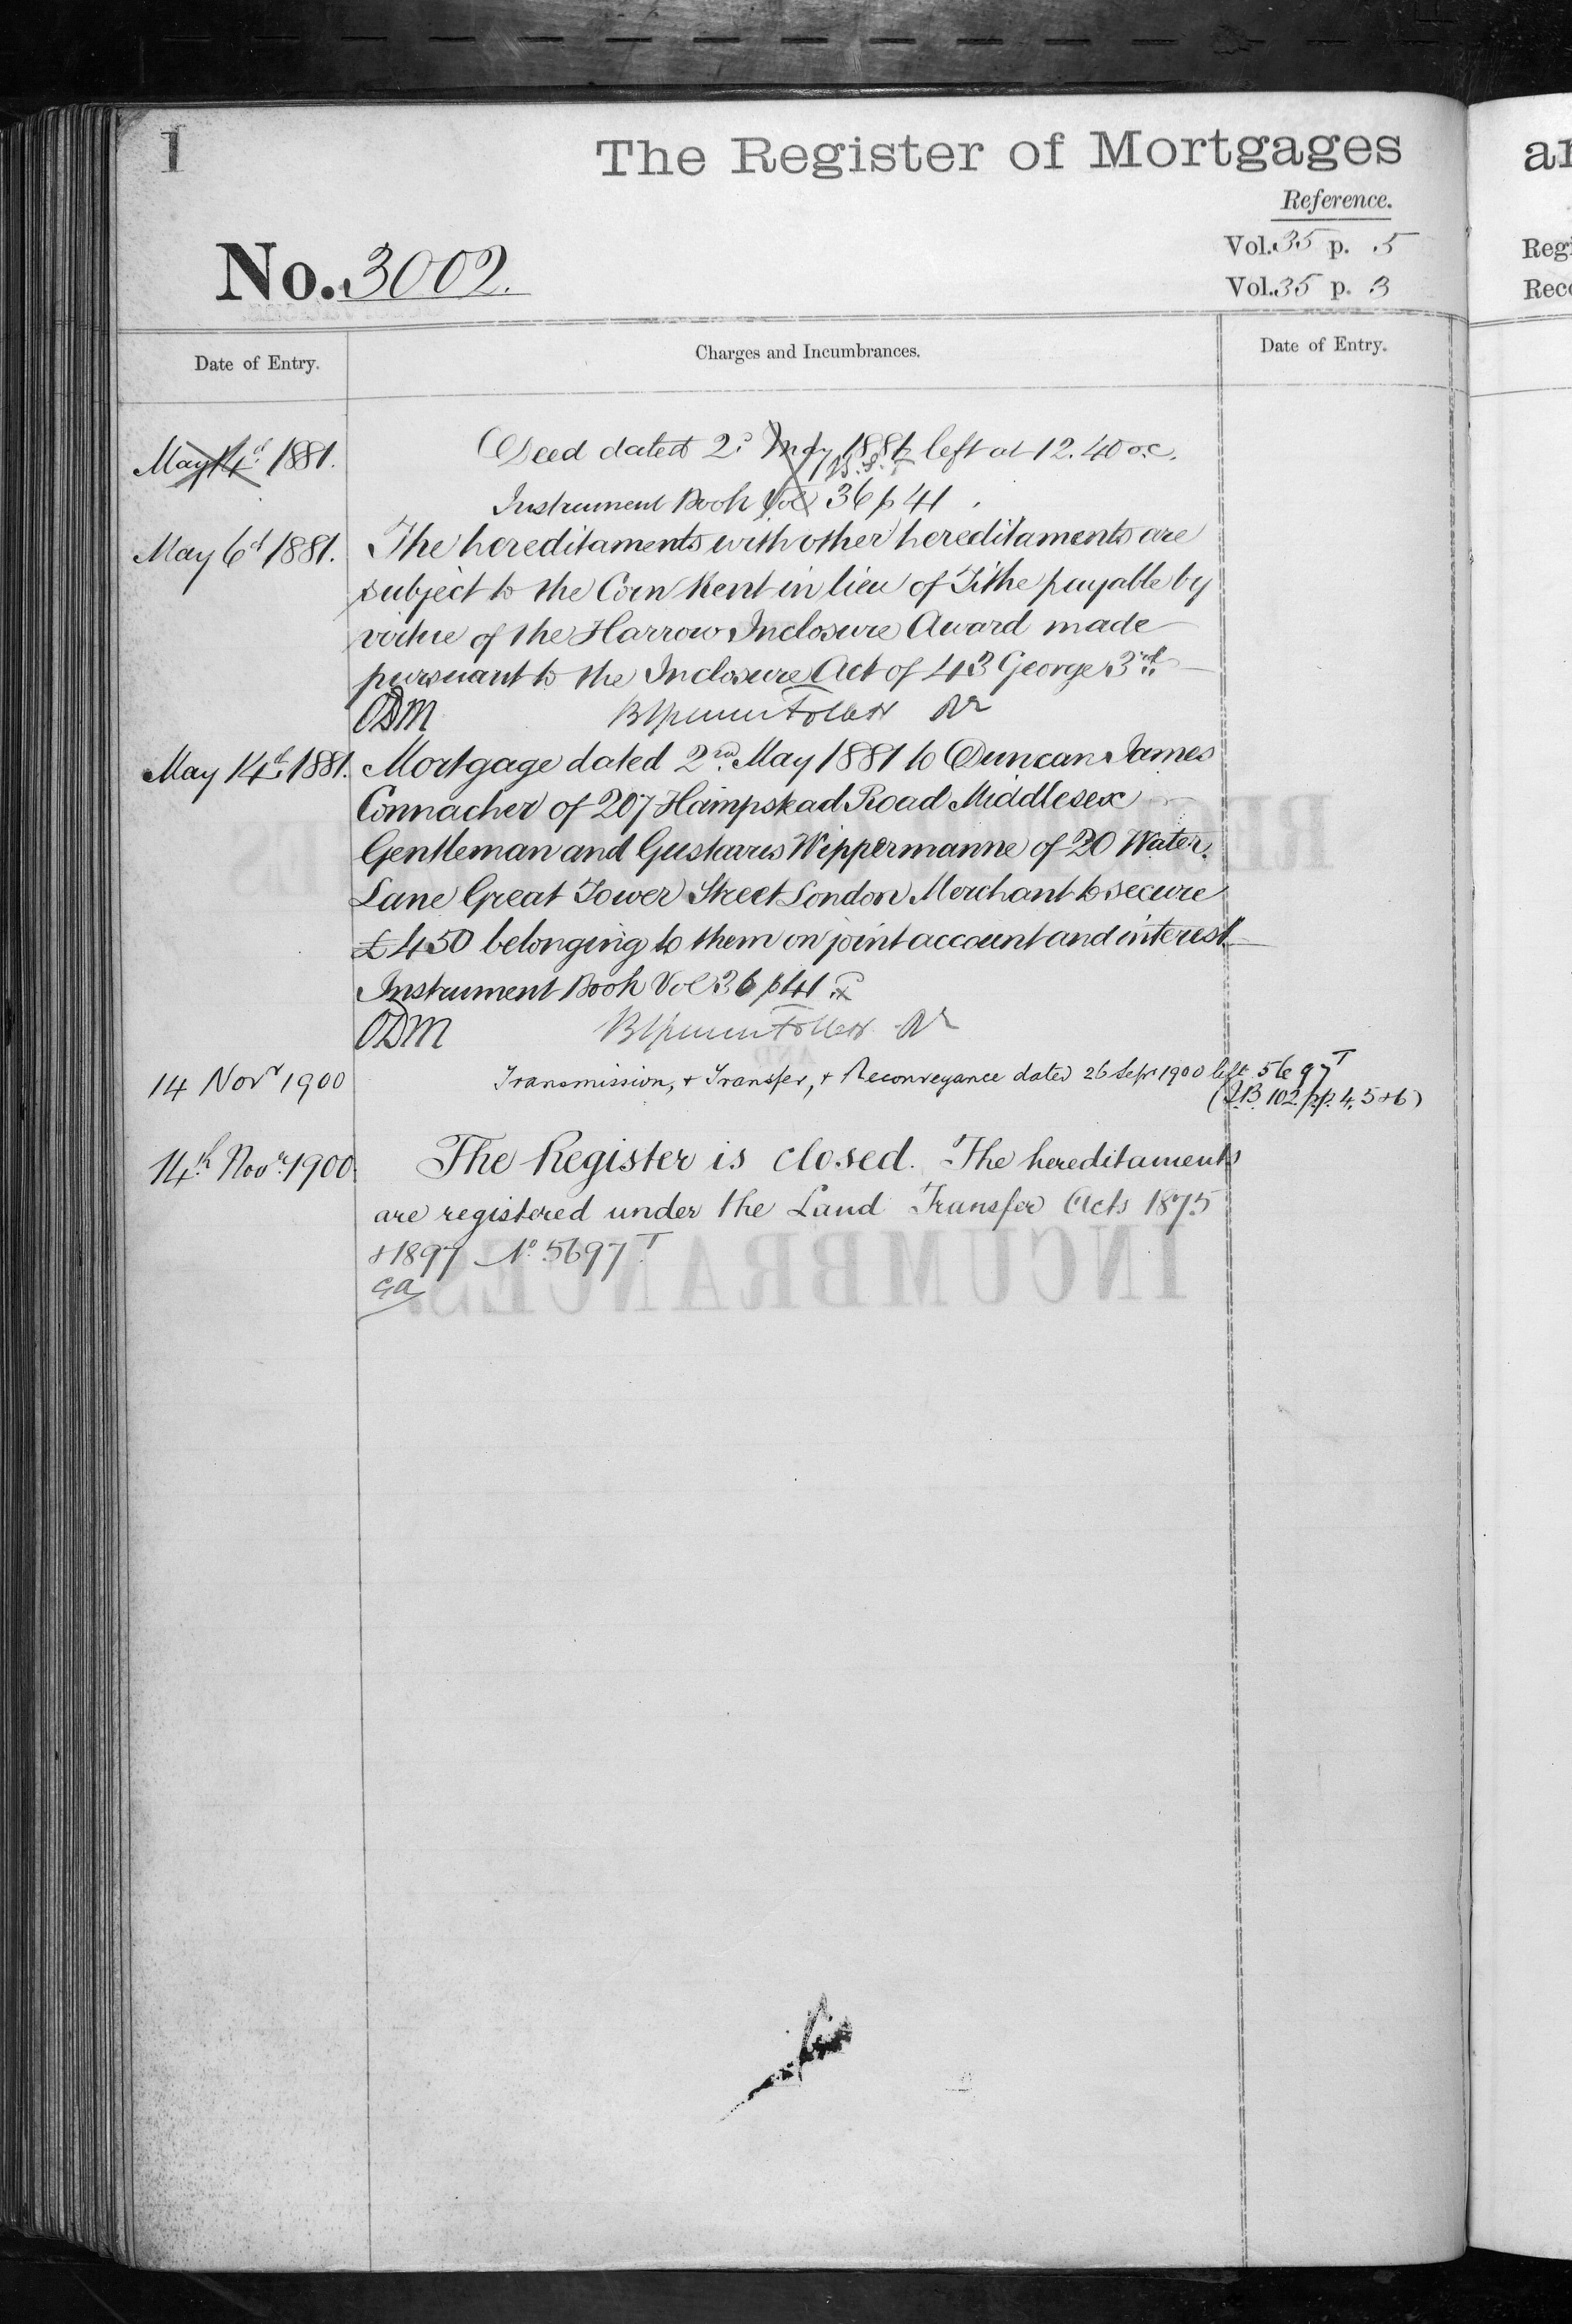 1
The Register of Mortgages
Reference.
Vol. 35 p. 5
No. 3002.
Vol. 35 p. 3
Date of Entry.
Charges and Incumbrances.
Date of Entry.
May 14th 1881. Deed dated 2d May 1881 left at 12.40 o.c.
Instrument Book Vol 36 p 41
May 6th 1881. The hereditaments with other hereditaments are
subject to the Corn Rent in lieu of Tithe payable by
virtue of the Harrow Inclosure Award made
pursuant to the Inclosure Act of 43 George 3rd
ODM
May 14th 1881. Mortgage dated 2nd May 1881 to Duncan James
Connacher of 207 Hampstead Road Middlesex
Gentleman and Gustavus Wippermanne of 20 Water
Lane Great Tower Street London Merchant to secure
£450 belonging to them on joint account and interest
Instrument Book Vol 36 p 41
ODM
14 Novr 1900 Transmission, + Transfer, + Reconveyance dated 26 Sepr 1900 left 5697T
(I.B. 102. pp. 4, 5 + 6)
14th Novr 1900. The Register is closed. The hereditaments
are registered under the Land Transfer Acts 1875
+ 1897 No 5697T
GA
INCUMBRANCES.
ar
Regi
Reco